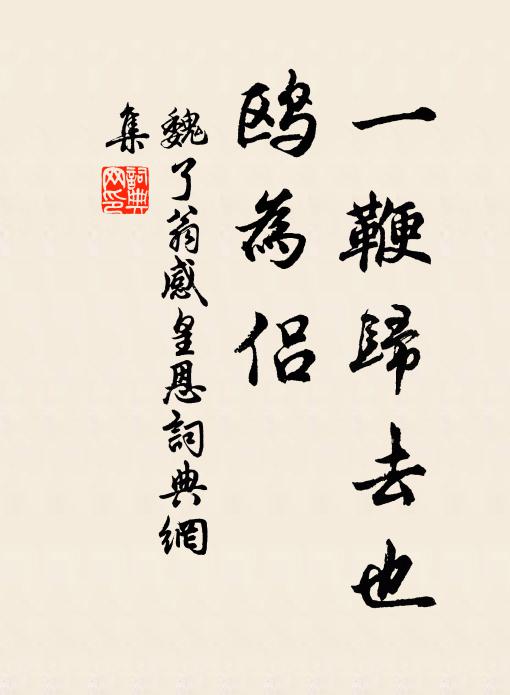 一鞭歸去也
鷗為侶
魏了翁感皇恩詞典網
集
詞典
网印